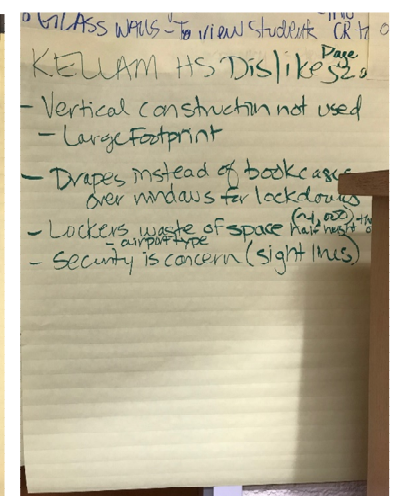 GLASS WALLS - To view students CR
KELLAM HS Dislikes
Page
- Vertical construction not used
- Large Footprint
- Drapes instead of bookcases
over windows for lockdowns
- Lockers waste of space half height
- airport type
- Security is concern (sight lines)